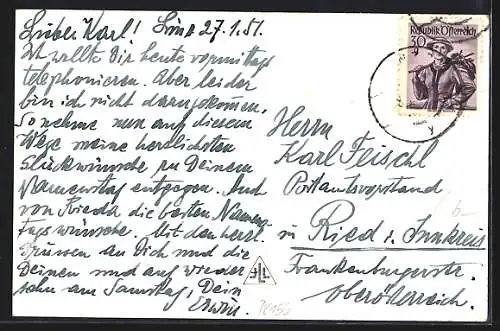 Lieber Karl! Linz 27.1.51.
Ich wollte Dir heute vormittags
telephonieren. Aber leider
bin ich nicht darangekommen.
So nehme nun auf diesem
Wege meine herzlichsten
Glückwünsche zu Deinem
Namenstag entgegen. Auch
von Friedl die besten Namens-
tagswünsche. Mit den herzl.
Grüssen an Dich und die
Deinen und auf wieder
sehn am Samstag, Dein
Erwin.
Republik Österreich
30
Herrn
Karl Feischl
Postamtsvorstand
in Ried i. Innkreis
Frankenburgerstr.
Oberösterreich.